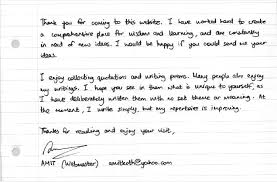 Thank you for coming to this website. I have worked hard to create
a comprehensive place for wisdom and learning, and am constantly
in need of new ideas. I would be happy if you could send me your
ideas.
I enjoy collecting quotations and writing poems. Many people also enjoy
my writings. I hope you see in them what is unique to yourself, as
I have deliberately written them with no set theme or meaning. At
the moment, I write simply, but my repertoire is improving.
Thanks for reading and enjoy your visit,
AMIT (Webmaster) amitkoth@yahoo.com